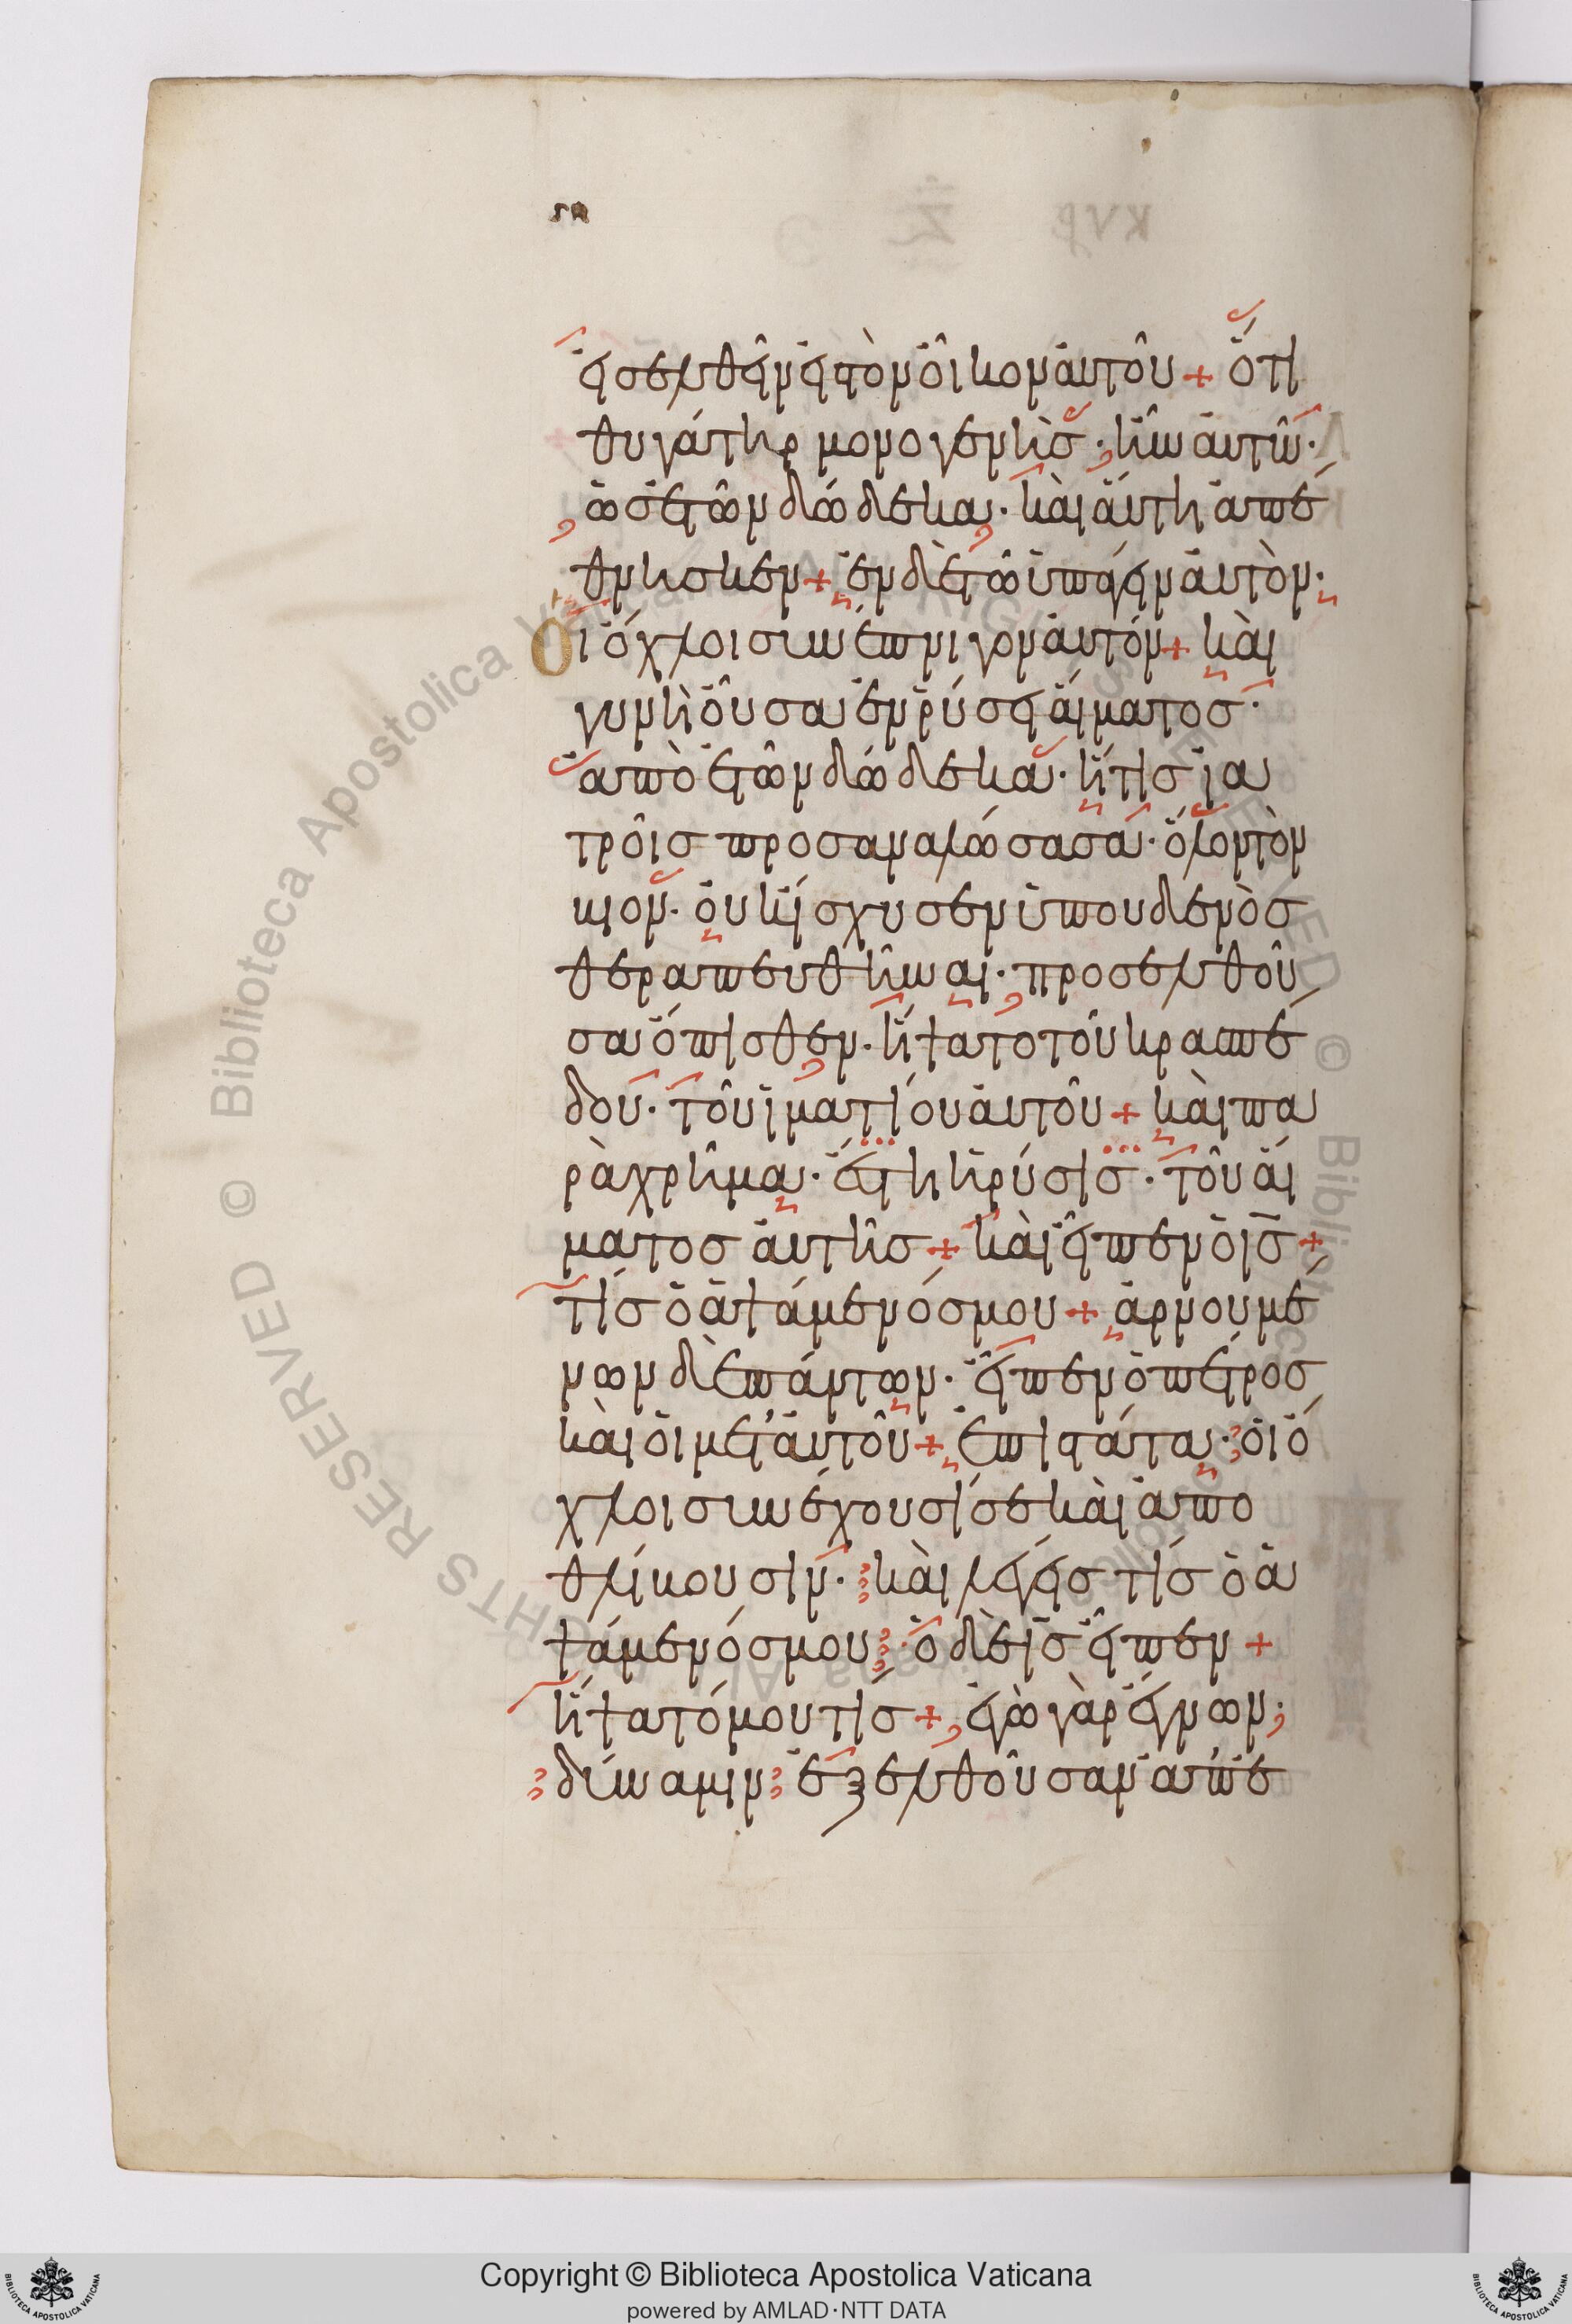 εἰσελθεῖν εἰς τὸν οἶκον αὐτοῦ + ὅτι
θυγάτηρ μονογενὴς · ἦν αὐτῷ ·
ὡς ἐτῶν δώδεκα · καὶ αὕτη ἀπέ
θνησκεν + ἐν δὲ τῶ ὑπάγειν αὐτὸν ·
Οἱ ὄχλοι συνέπνιγον αὐτόν + καὶ
γυνὴ οὖσα ἐν ῥύσει αἵματος ·
ἀπὸ ἐτῶν δώδεκα · ἥτις ἰα
τροῖς προσαναλώσασα · ὅλον τὸν
βίον · οὐκ ἴσχυσεν ὑπ' οὐδενὸς
θεραπευθῆναι · προσελθοῦ
σα ὄπισθεν · ἥψατο τοῦ κρασπέ
δου · τοῦ ἱματίου αὐτοῦ + καὶ πα
ραχρῆμα · ἔστη ἡ ῥύσις · τοῦ αἵ
ματος αὐτῆς + καὶ εἶπεν ὁ ις +
τίς ὁ ἁψάμενός μου + ἀρνουμέ
νων δὲ πάντων · εἶπεν ὁ πέτρος
καὶ οἱ μετ' αὐτοῦ + ἐπιστάτα · οἱ ὄ
χλοι συνέχουσί σε καὶ ἀπο
θλίβουσιν · καὶ λέγεις τίς ὁ ἁ
ψάμενός μου · ὁ δὲ ις εἶπεν +
ἥψατό μου τίς + ἐγὼ γὰρ ἔγνων
δύναμιν ἐξελθοῦσαν ἀπ' ἐ
Copyright © Biblioteca Apostolica Vaticana
powered by AMLAD·NTT DATA